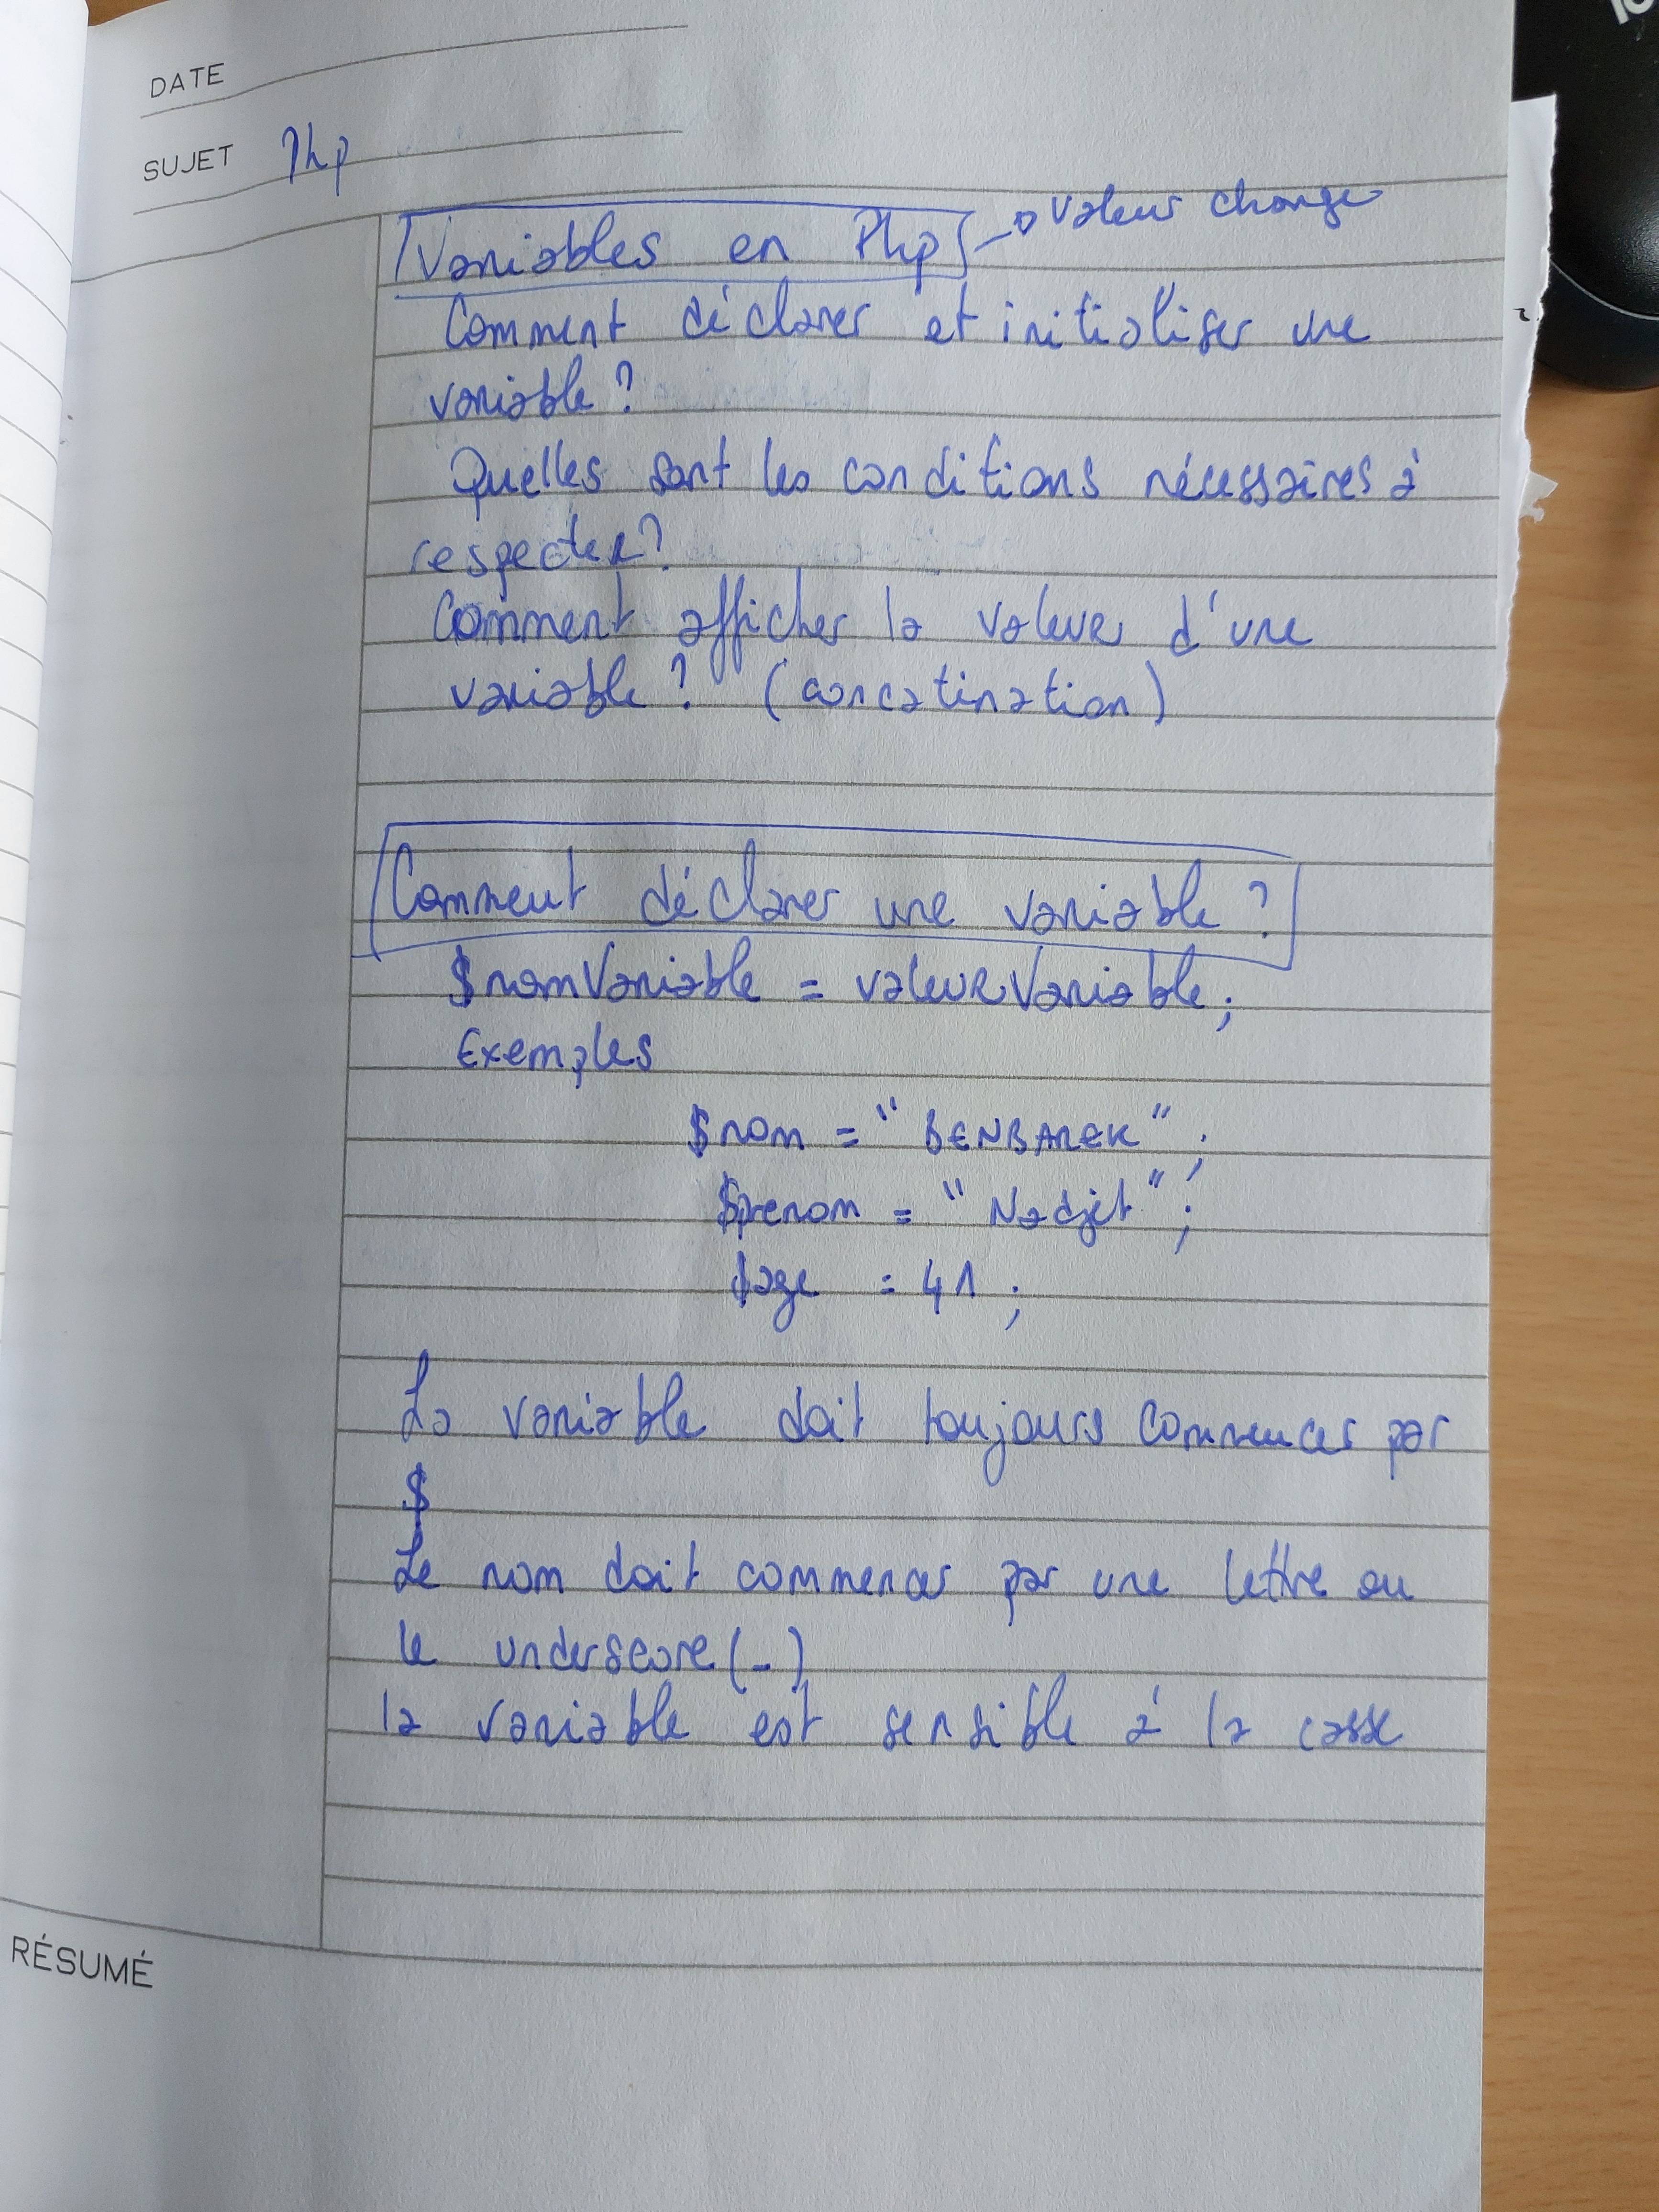 DATE
SUJET Php
Variables en Php → valeur change
Comment déclarer et initialiser une
variable ?
Quelles sont les conditions nécessaires à
respecter ?
Comment afficher la valeur d'une
variable ? (concatination)
Comment déclarer une variable ?
$nomVariable = valeurVariable;
Exemples
$nom = "BENBAREK";
$prenom = "Nadjet";
$age = 41;
La variable doit toujours commencer par
$
Le nom doit commencer par une lettre ou
le underscore (_)
la variable est sensible à la casse
RÉSUMÉ